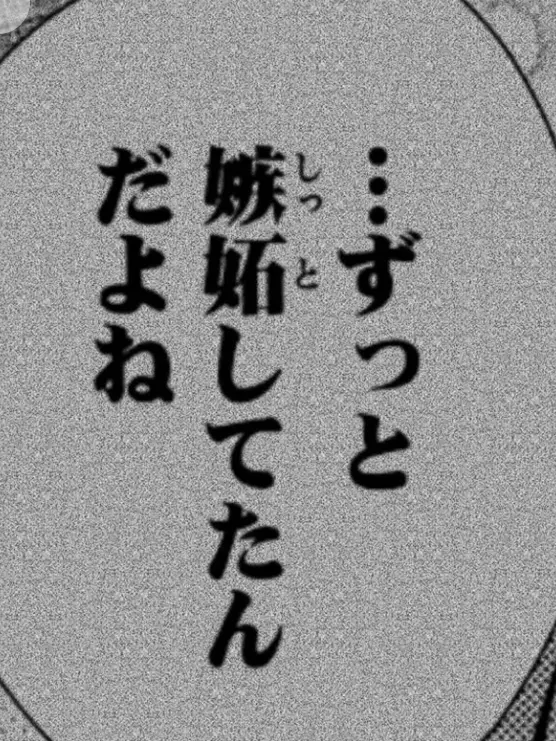 …ずっと
嫉妬してたん
だよね
しっと